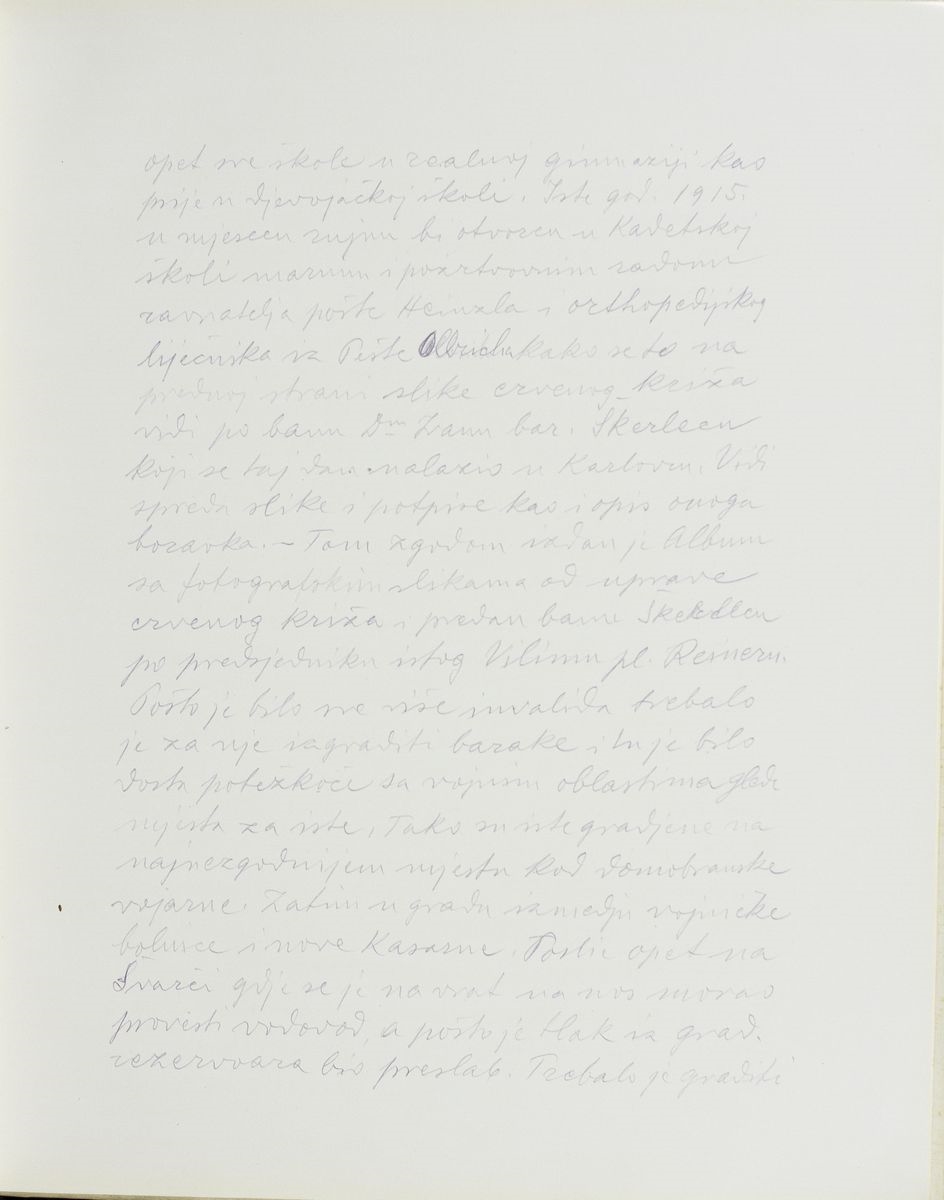 opet sve škole u realnoj gimnaziji kao
prije u djevojačkoj školi. Iste god. 1915.
u mjesecu rujnu bi otvoren u Kadetskoj
školi marnim i požrtvovnim radom
ravnatelja pošte Heinzla i orthopedijskog
liječnika iz Pešte Ollricha kako se to na
prednoj strani slike crvenog križa
vidi po banu Dru Ivanu bar. Skerlecu
koji se taj dan nalazio u Karlovcu. Vidi
spreda slike i potpise kao i opis ovoga
boravka. – Tom zgodom izdan je Album
sa fotografskim slikama od uprave
crvenog križa i predan banu
po predsjedniku istog Vilimu pl. Reineru.
Pošto je bilo sve više invalida trebalo
je za nje izgraditi barake i tu je bilo
dosta potežkoće sa vojnim oblastima glede
mjesta za iste. Tako su iste gradjene na
najnezgodnijem mjestu kod domobranske
vojarne. Zatim u gradu izmedju vojničke
bolnice i nove Kasarne. Poslie opet na
Švarči gdje se je na vrat na nos morao
provesti vodovod, a pošto je tlak iz grad.
rezervoara bio preslab. Trebalo je graditi